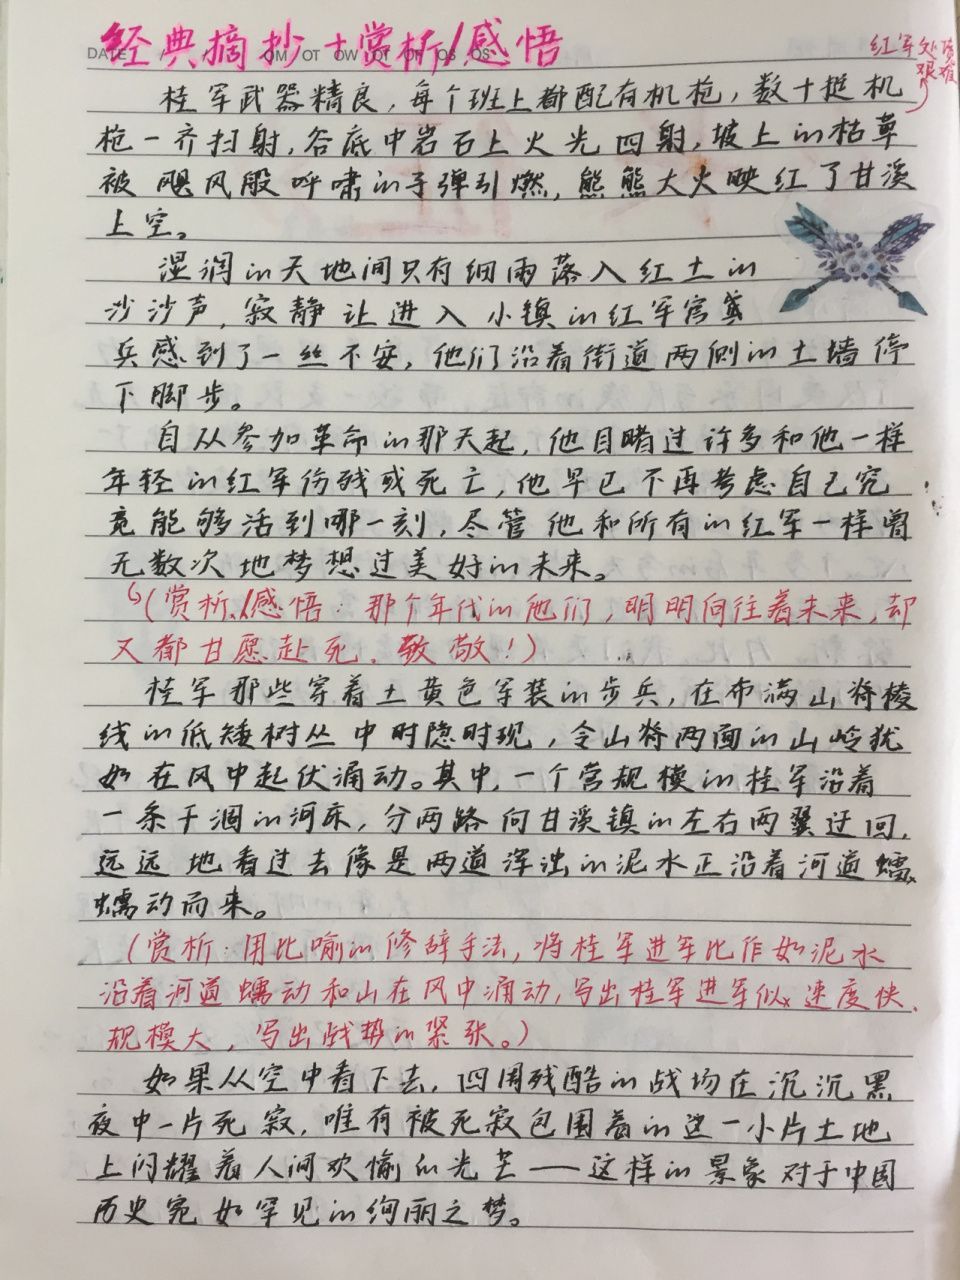 经典摘抄+赏析/感悟
DATE / / MO TU WE TH FR SA SU
红军处境
艰难
桂军武器精良，每个班上都配有机枪，数十挺机
枪一齐扫射，谷底中岩石上火光四射，坡上的枯草
被飓风般呼啸的子弹引燃，熊熊大火映红了甘溪
上空。
湿润的天地间只有细雨落入红土的
沙沙声，寂静让进入小镇的红军官
兵感到了一丝不安，他们沿着街道两侧的土墙停
下脚步。
自从参加革命的那天起，他目睹过许多和他一样
年轻的红军伤残或死亡，他早已不再考虑自己究
竟能够活到哪一刻，尽管他和所有的红军一样曾
无数次地梦想过美好的未来。
（赏析/感悟：那个年代的他们，明明向往着未来，却
又都甘愿赴死．致敬！）
桂军那些穿着土黄色军装的步兵，在布满山脊棱
线的低矮树丛中时隐时现，令山脊两面的山岭犹
如在风中起伏涌动。其中，一个营规模的桂军沿着
一条干涸的河床，分两路向甘溪镇的左右两翼迂回，
远远地看过去像是两道浑浊的泥水正沿着河道蠕
蠕动而来。
（赏析：用比喻的修辞手法，将桂军进军比作如泥水
沿着河道蠕动和山在风中涌动，写出桂军进军似速度快、
规模大，写出战势的紧张。）
如果从空中看下去，四周残酷的战场在沉沉黑
夜中一片死寂，唯有被死寂包围着的这一小片土地
上闪耀着人间欢愉的光芒——这样的景象对于中国
历史宛如罕见的绚丽之梦。